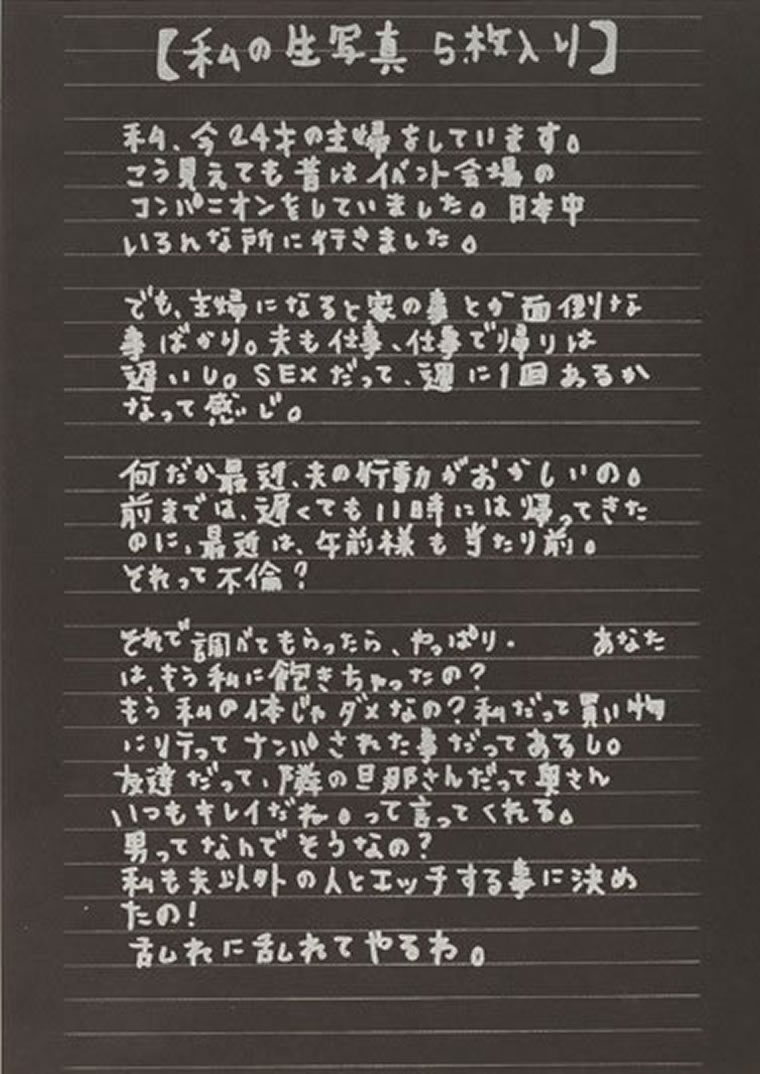 【私の生写真 5枚入り】
私、今24才の主婦をしています。
こう見えても昔はイベント会場の
コンパニオンをしていました。日本中
いろんな所に行きました。
でも、主婦になると家の事とか面倒な
事ばかり。夫も仕事、仕事で帰りは
遅いし。SEXだって、週に1回あるか
なって感じ。
何だか最近、夫の行動がおかしいの。
前までは、遅くても11時には帰ってきた
のに、最近は、午前様も当たり前。
それって不倫？
それで調べてもらったら、やっぱり・　あなた
は、もう私に飽きちゃったの？
もう私の体じゃダメなの？私だって買い物
に行ってナンパされた事だってあるし。
友達だって、隣の旦那さんだって奥さん
いつもキレイだね。って言ってくれる。
男ってなんでそうなの？
私も夫以外の人とエッチする事に決め
たの！
乱れに乱れてやるわ。